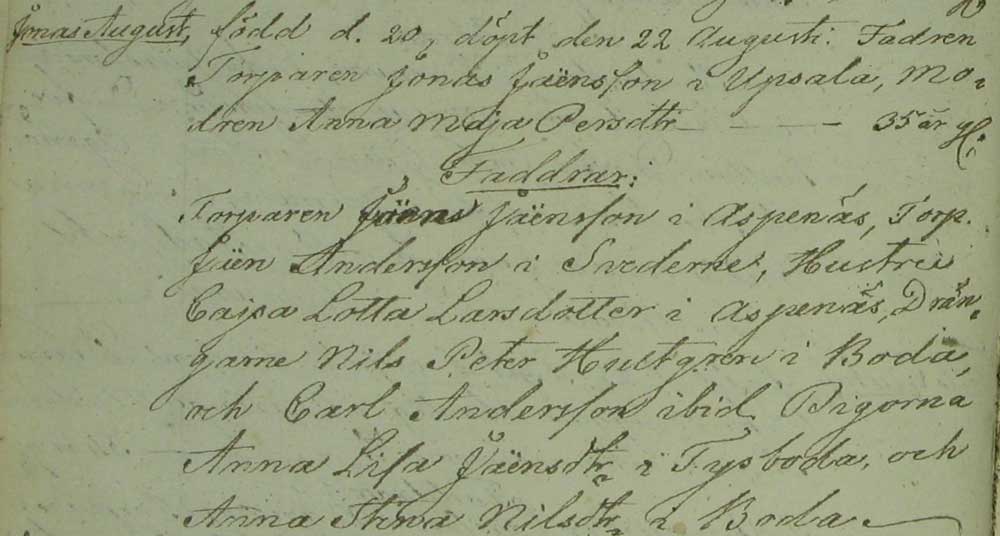 Jonas August, född d. 20, döpt den 22 Augusti. Fadren
Torparen Jonas Jäensson i Upsala, Mo-
dren Anna Maja Persdtr — — — 35 år gl.
Faddrar:
Torparen Jäensson i Aspenäs, Torp.
Jäen Andersson i Svederne, Hustru
Cajsa Lotta Larsdotter i Aspenäs, Drän-
garne Nils Peter Hultgren i Boda,
och Carl Andersson ibid. Pigorna
Anna Lisa Jäensdtr i Tysboda, och
Anna Stina Nilsdtr i Boda